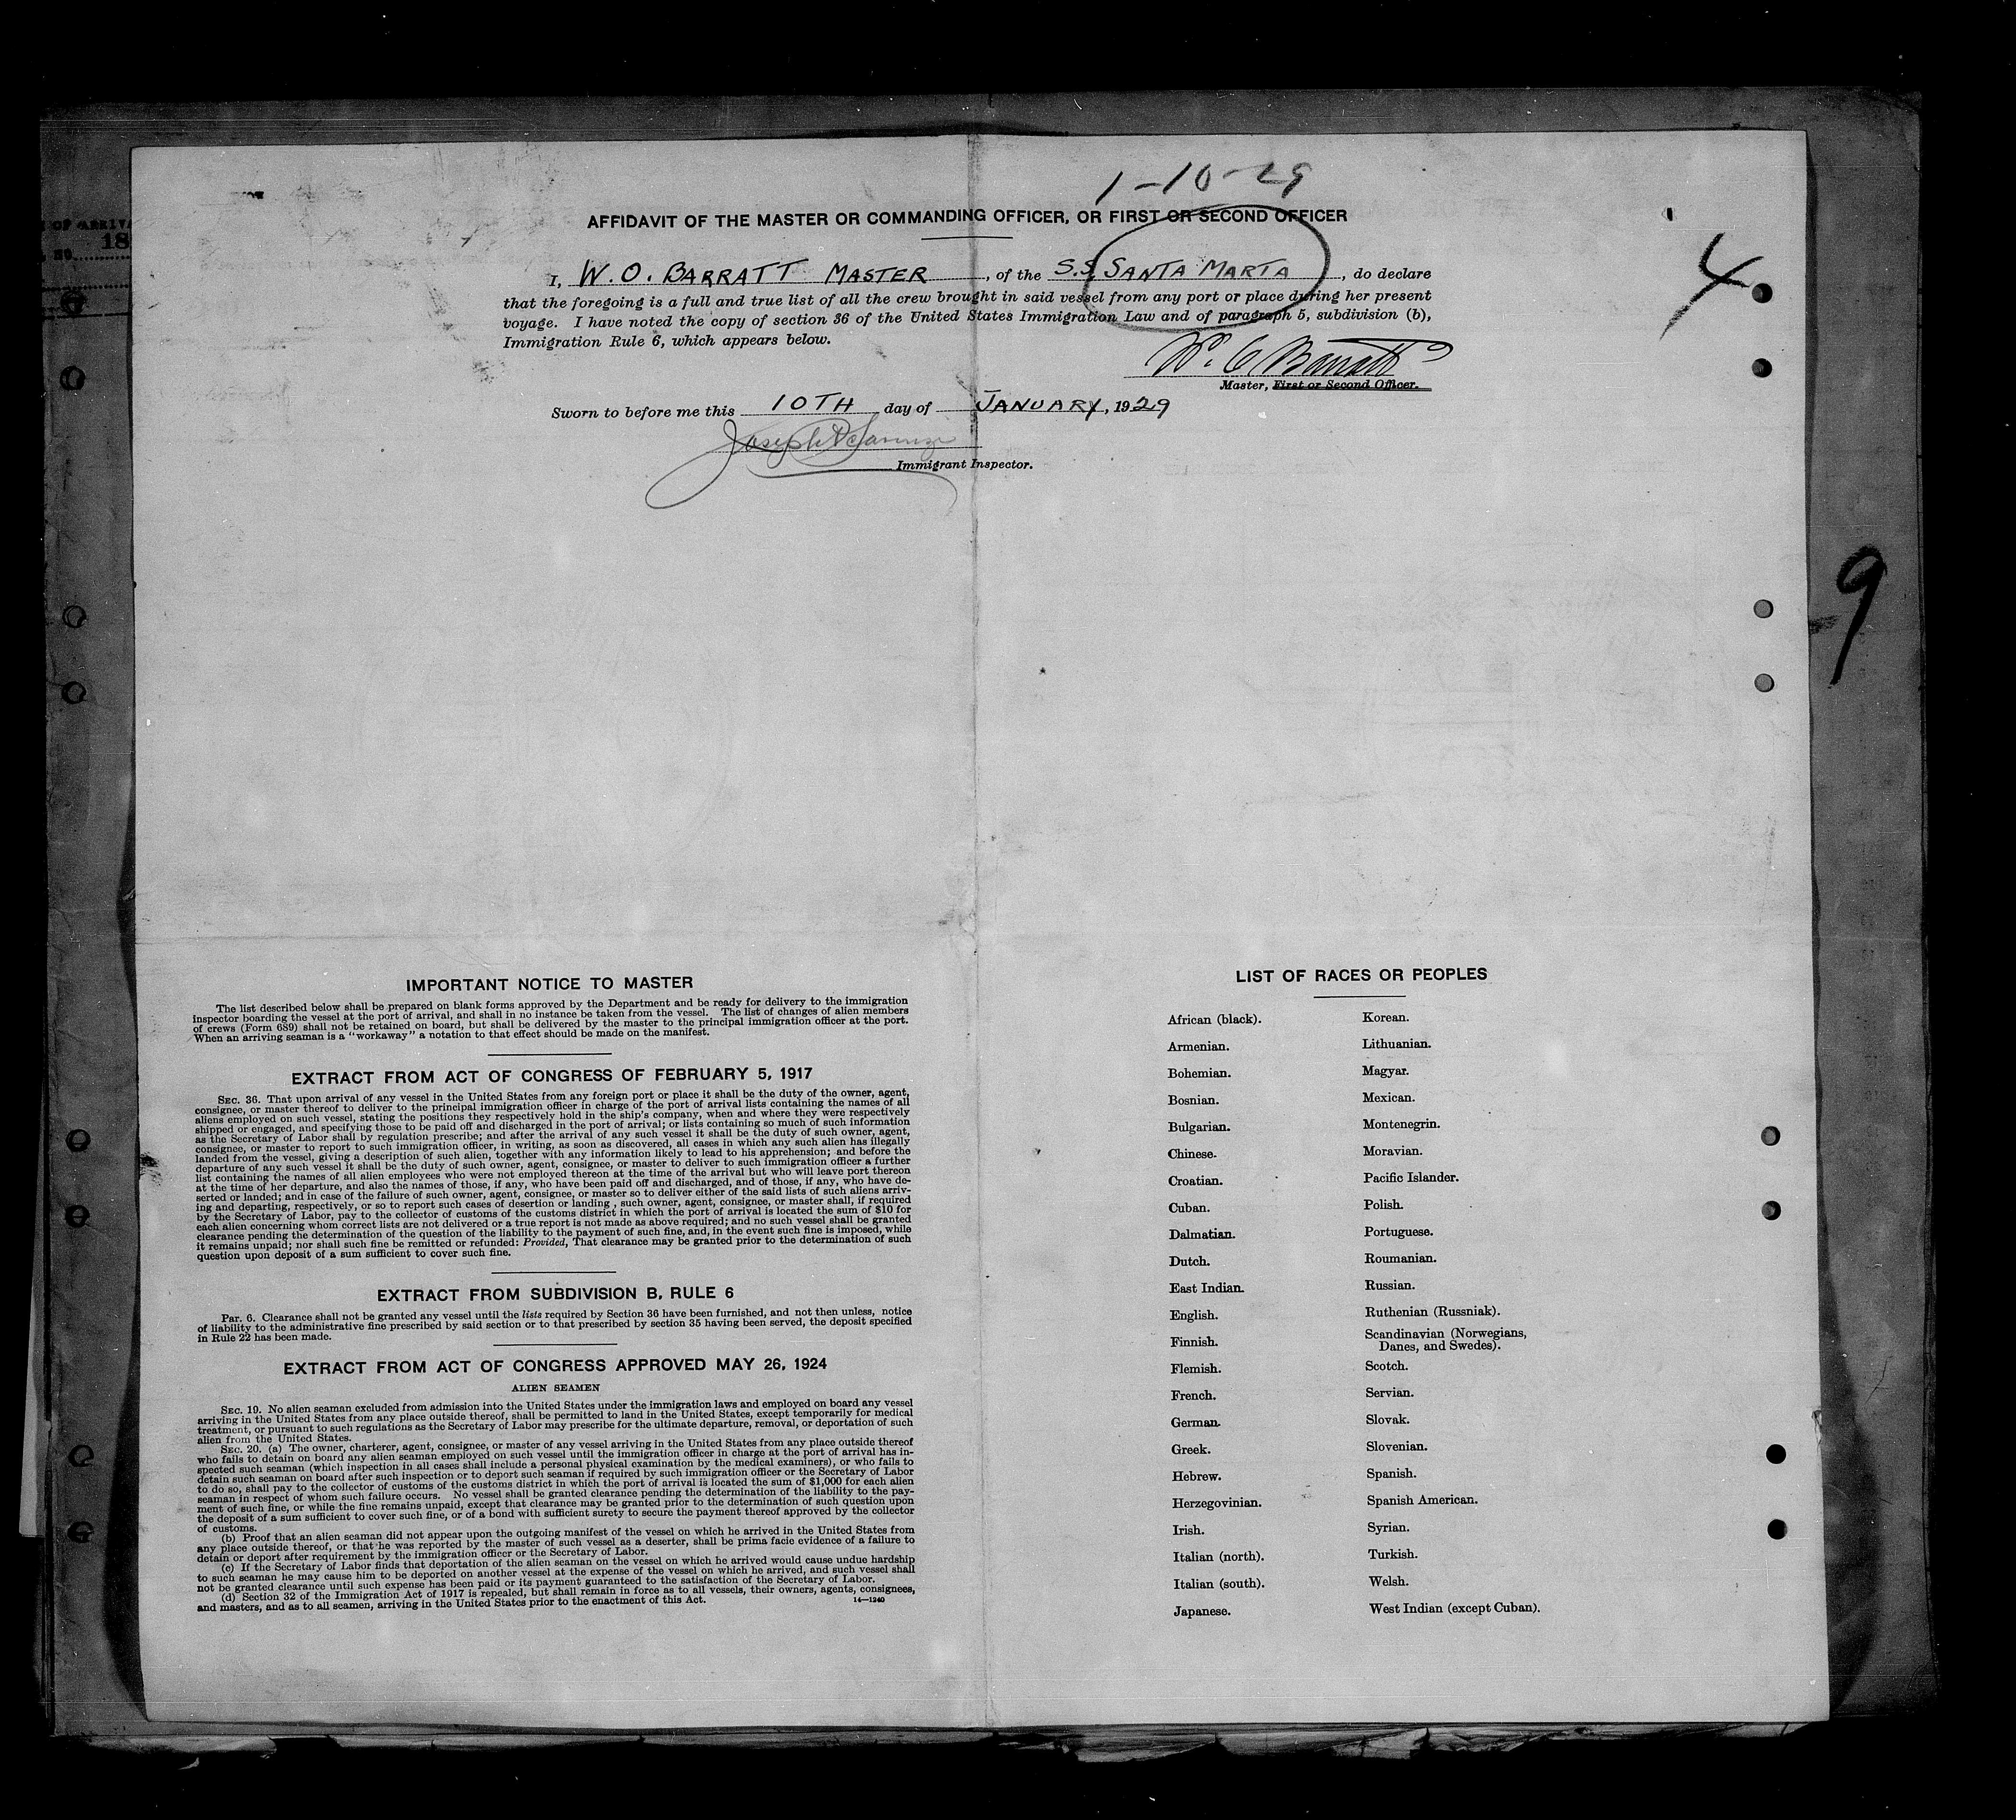 OF ARRIVA
NO. 18
1-10-29
AFFIDAVIT OF THE MASTER OR COMMANDING OFFICER, OR FIRST OR SECOND OFFICER
I, W. O. BARRATT MASTER, of the S.S. SANTA MARTA, do declare
that the foregoing is a full and true list of all the crew brought in said vessel from any port or place during her present
voyage. I have noted the copy of section 36 of the United States Immigration Law and of paragraph 5, subdivision (b),
Immigration Rule 6, which appears below.
4
W. O. Barratt
Master, First or Second Officer.
Sworn to before me this 10TH day of JANUARY, 1929
Joseph
Immigrant Inspector.
9
IMPORTANT NOTICE TO MASTER
The list described below shall be prepared on blank forms approved by the Department and be ready for delivery to the immigration
inspector boarding the vessel at the port of arrival, and shall in no instance be taken from the vessel. The list of changes of alien members
of crews (Form 689) shall not be retained on board, but shall be delivered by the master to the principal immigration officer at the port.
When an arriving seaman is a "workaway" a notation to that effect should be made on the manifest.
EXTRACT FROM ACT OF CONGRESS OF FEBRUARY 5, 1917
SEC. 36. That upon arrival of any vessel in the United States from any foreign port or place it shall be the duty of the owner, agent,
consignee, or master thereof to deliver to the principal immigration officer in charge of the port of arrival lists containing the names of all
aliens employed on such vessel, stating the positions they respectively hold in the ship's company, when and where they were respectively
shipped or engaged, and specifying those to be paid off and discharged in the port of arrival; or lists containing so much of such information
as the Secretary of Labor shall by regulation prescribe; and after the arrival of any such vessel it shall be the duty of such owner, agent,
consignee, or master to report to such immigration officer, in writing, as soon as discovered, all cases in which any such alien has illegally
landed from the vessel, giving a description of such alien, together with any information likely to lead to his apprehension; and before the
departure of any such vessel it shall be the duty of such owner, agent, consignee, or master to deliver to such immigration officer a further
list containing the names of all alien employees who were not employed thereon at the time of the arrival but who will leave port thereon
at the time of her departure, and also the names of those, if any, who have been paid off and discharged, and of those, if any, who have de-
serted or landed; and in case of the failure of such owner, agent, consignee, or master so to deliver either of the said lists of such aliens arriv-
ing and departing, respectively, or so to report such cases of desertion or landing, such owner, agent, consignee, or master shall, if required
by the Secretary of Labor, pay to the collector of customs of the customs district in which the port of arrival is located the sum of $10 for
each alien concerning whom correct lists are not delivered or a true report is not made as above required; and no such vessel shall be granted
clearance pending the determination of the question of the liability to the payment of such fine, and, in the event such fine is imposed, while
it remains unpaid; nor shall such fine be remitted or refunded: Provided, That clearance may be granted prior to the determination of such
question upon deposit of a sum sufficient to cover such fine.
EXTRACT FROM SUBDIVISION B, RULE 6
PAR. 6. Clearance shall not be granted any vessel until the lists required by Section 36 have been furnished, and not then unless, notice
of liability to the administrative fine prescribed by said section or to that prescribed by section 35 having been served, the deposit specified
in Rule 22 has been made.
EXTRACT FROM ACT OF CONGRESS APPROVED MAY 26, 1924
ALIEN SEAMEN
SEC. 19. No alien seaman excluded from admission into the United States under the immigration laws and employed on board any vessel
arriving in the United States from any place outside thereof, shall be permitted to land in the United States, except temporarily for medical
treatment, or pursuant to such regulations as the Secretary of Labor may prescribe for the ultimate departure, removal, or deportation of such
alien from the United States.
SEC. 20. (a) The owner, charterer, agent, consignee, or master of any vessel arriving in the United States from any place outside thereof
who fails to detain on board any alien seaman employed on such vessel until the immigration officer in charge at the port of arrival has in-
spected such seaman (which inspection in all cases shall include a personal physical examination by the medical examiners), or who fails to
detain such seaman on board after such inspection or to deport such seaman if required by such immigration officer or the Secretary of Labor
to do so, shall pay to the collector of customs of the customs district in which the port of arrival is located the sum of $1,000 for each alien
seaman in respect of whom such failure occurs. No vessel shall be granted clearance pending the determination of the liability to the pay-
ment of such fine, or while the fine remains unpaid, except that clearance may be granted prior to the determination of such question upon
the deposit of a sum sufficient to cover such fine, or of a bond with sufficient surety to secure the payment thereof approved by the collector
of customs.
(b) Proof that an alien seaman did not appear upon the outgoing manifest of the vessel on which he arrived in the United States from
any place outside thereof, or that he was reported by the master of such vessel as a deserter, shall be prima facie evidence of a failure to
detain or deport after requirement by the immigration officer or the Secretary of Labor.
(c) If the Secretary of Labor finds that deportation of the alien seaman on the vessel on which he arrived would cause undue hardship
to such seaman he may cause him to be deported on another vessel at the expense of the vessel on which he arrived, and such vessel shall
not be granted clearance until such expense has been paid or its payment guaranteed to the satisfaction of the Secretary of Labor.
(d) Section 32 of the Immigration Act of 1917 is repealed, but shall remain in force as to all vessels, their owners, agents, consignees,
and masters, and as to all seamen, arriving in the United States prior to the enactment of this Act.
14—1240
LIST OF RACES OR PEOPLES
African (black).
Armenian.
Bohemian.
Bosnian.
Bulgarian.
Chinese.
Croatian.
Cuban.
Dalmatian.
Dutch.
East Indian.
English.
Finnish.
Flemish.
French.
German.
Greek.
Hebrew.
Herzegovinian.
Irish.
Italian (north).
Italian (south).
Japanese.
Korean.
Lithuanian.
Magyar.
Mexican.
Montenegrin.
Moravian.
Pacific Islander.
Polish.
Portuguese.
Roumanian.
Russian.
Ruthenian (Russniak).
Scandinavian (Norwegians,
Danes, and Swedes).
Scotch.
Servian.
Slovak.
Slovenian.
Spanish.
Spanish American.
Syrian.
Turkish.
Welsh.
West Indian (except Cuban).